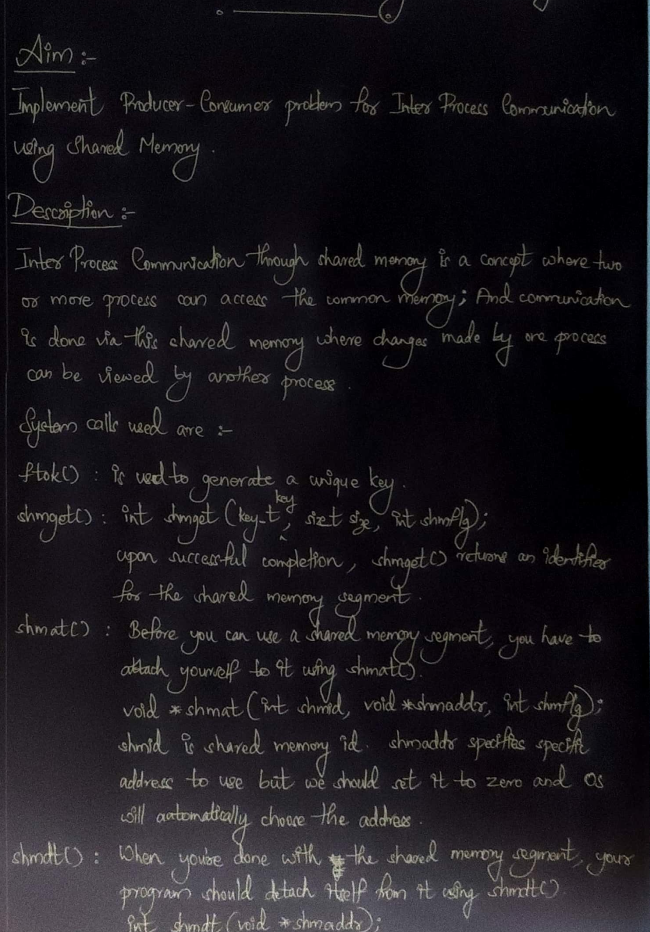 Aim :-
Implement Producer-Consumer problem for Inter Process Communication
using Shared Memory.
Description :-
Inter Process Communication through shared memory is a concept where two
or more process can access the common memory; And communication
is done via this shared memory where changes made by one process
can be viewed by another process.
System calls used are :-
ftok() : is used to generate a unique key.
shmget() : int shmget (key_t key, size_t size, int shmflg);
upon successful completion, shmget() returns an identifier
for the shared memory segment.
shmat() : Before you can use a shared memory segment, you have to
attach yourself to it using shmat().
void *shmat (int shmid, void *shmaddr, int shmflg);
shmid is shared memory id. shmaddr specifies specific
address to use but we should set it to zero and OS
will automatically choose the address.
shmdt() : When you're done with the shared memory segment, your
program should detach itself from it using shmdt()
int shmdt (void *shmaddr);